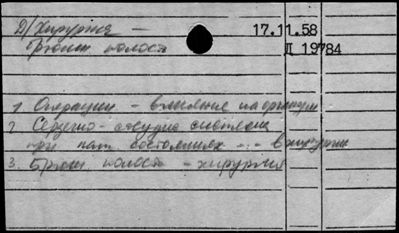 Д/Хирургия — 17.11.58
Брюшн полость Д 19784
1 Операции — влияние на организм
2 Сердечно-сосудис система
при пат состояниях -- в хирургии
3. Брюш полость — хирургия